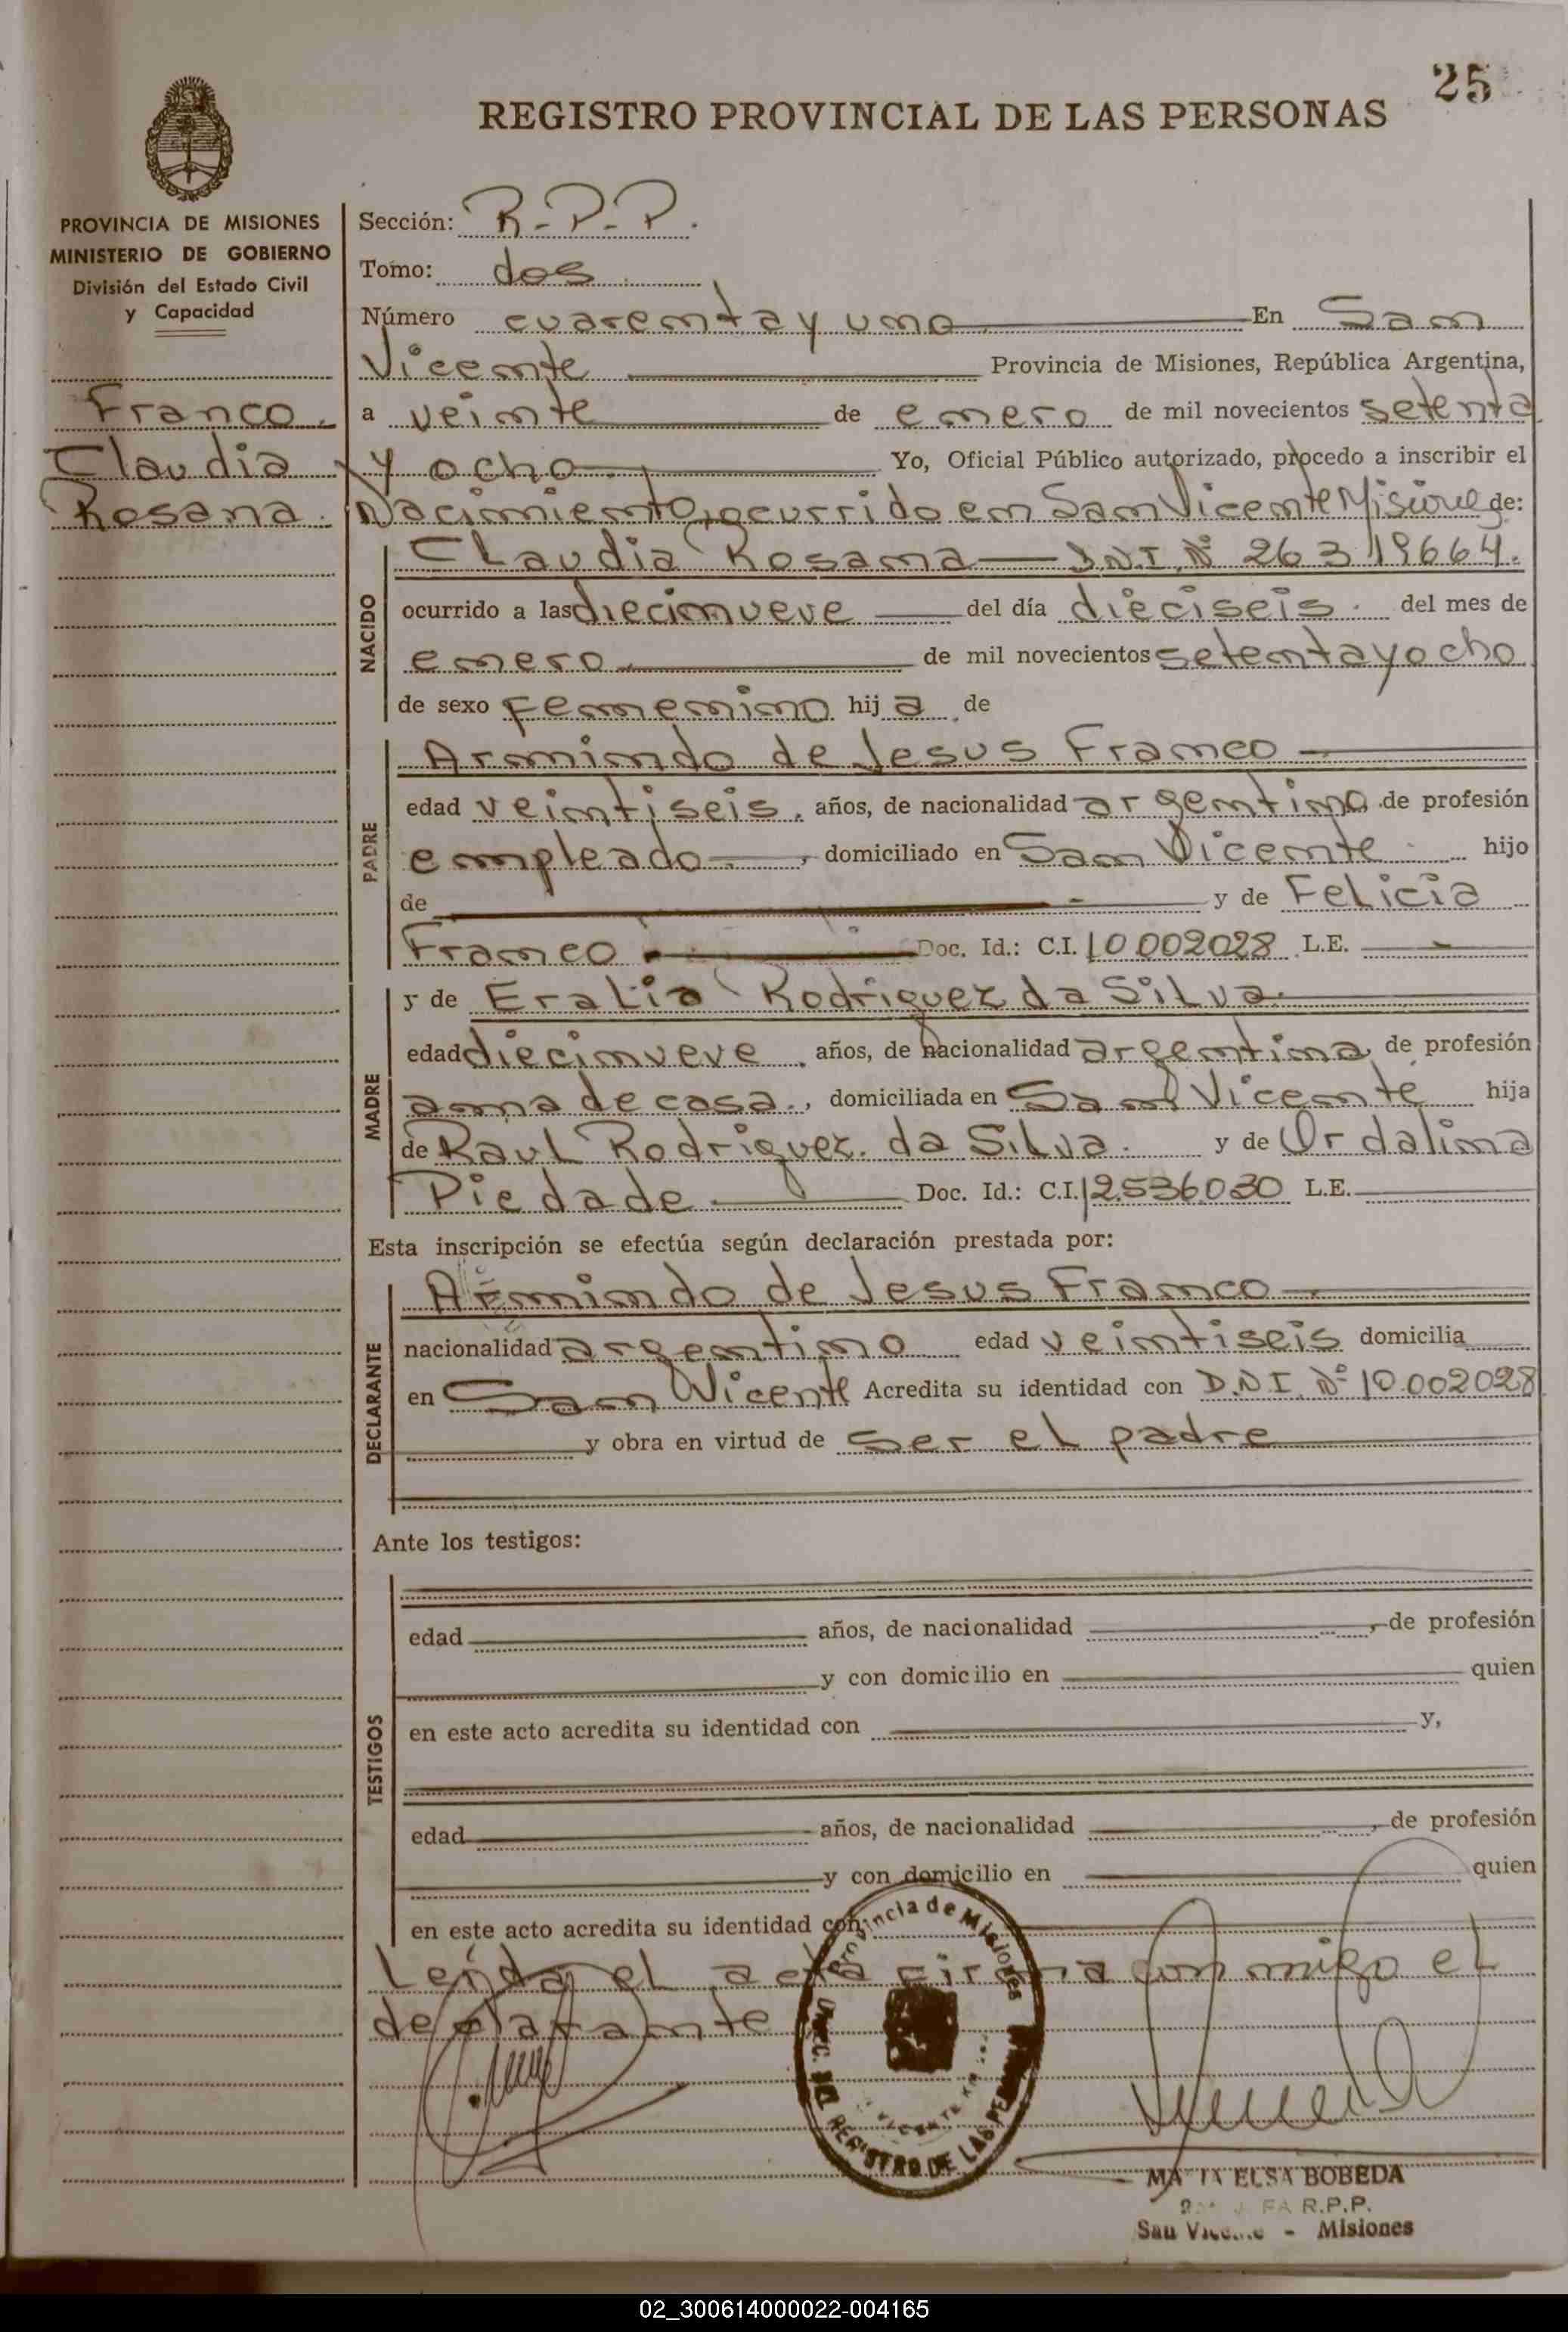 25
REGISTRO PROVINCIAL DE LAS PERSONAS
PROVINCIA DE MISIONES
MINISTERIO DE GOBIERNO
División del Estado Civil
y Capacidad
Franco,
Claudia
Rosana.
Sección: R-P-P.
Tomo: dos
Número cuarenta y uno En San
Vicente Provincia de Misiones, República Argentina,
a veinte de enero de mil novecientos setenta
y ocho Yo, Oficial Público autorizado, procedo a inscribir el
Nacimiento, ocurrido en San Vicente Misiones de:
NACIDO
Claudia Rosana D.N.I. Nº 26319664.
ocurrido a las diecinueve del día dieciseis. del mes de
enero de mil novecientos setenta y ocho
de sexo femenino hija de
PADRE
Armindo de Jesus Franco
edad veintiseis, años, de nacionalidad argentino de profesión
empleado, domiciliado en San Vicente hijo
de y de Felicia
Franco Doc. Id.: C.I. 10.002028 L.E. -
MADRE
y de Eralia Rodriguez da Silva
edad diecinueve, años, de nacionalidad argentina, de profesión
ama de casa., domiciliada en San Vicente hija
de Raul Rodriguez. da Silva. y de Ordalina
Piedade Doc. Id.: C.I. 12.536.030 L.E.
Esta inscripción se efectúa según declaración prestada por:
DECLARANTE
Armindo de Jesus Franco
nacionalidad argentino edad veintiseis domicilia
en San Vicente Acredita su identidad con D.N.I. Nº 10.002028
y obra en virtud de ser el padre
Ante los testigos:
TESTIGOS
edad años, de nacionalidad , de profesión
y con domicilio en quien
en este acto acredita su identidad con y,
edad años, de nacionalidad , de profesión
y con domicilio en quien
en este acto acredita su identidad con
Leida el acta firma conmigo el
declarante
Provincia de Misiones
REGISTRO DE LAS
ELSA BOBEDA
R.P.P.
San - Misiones
02_300614000022-004165